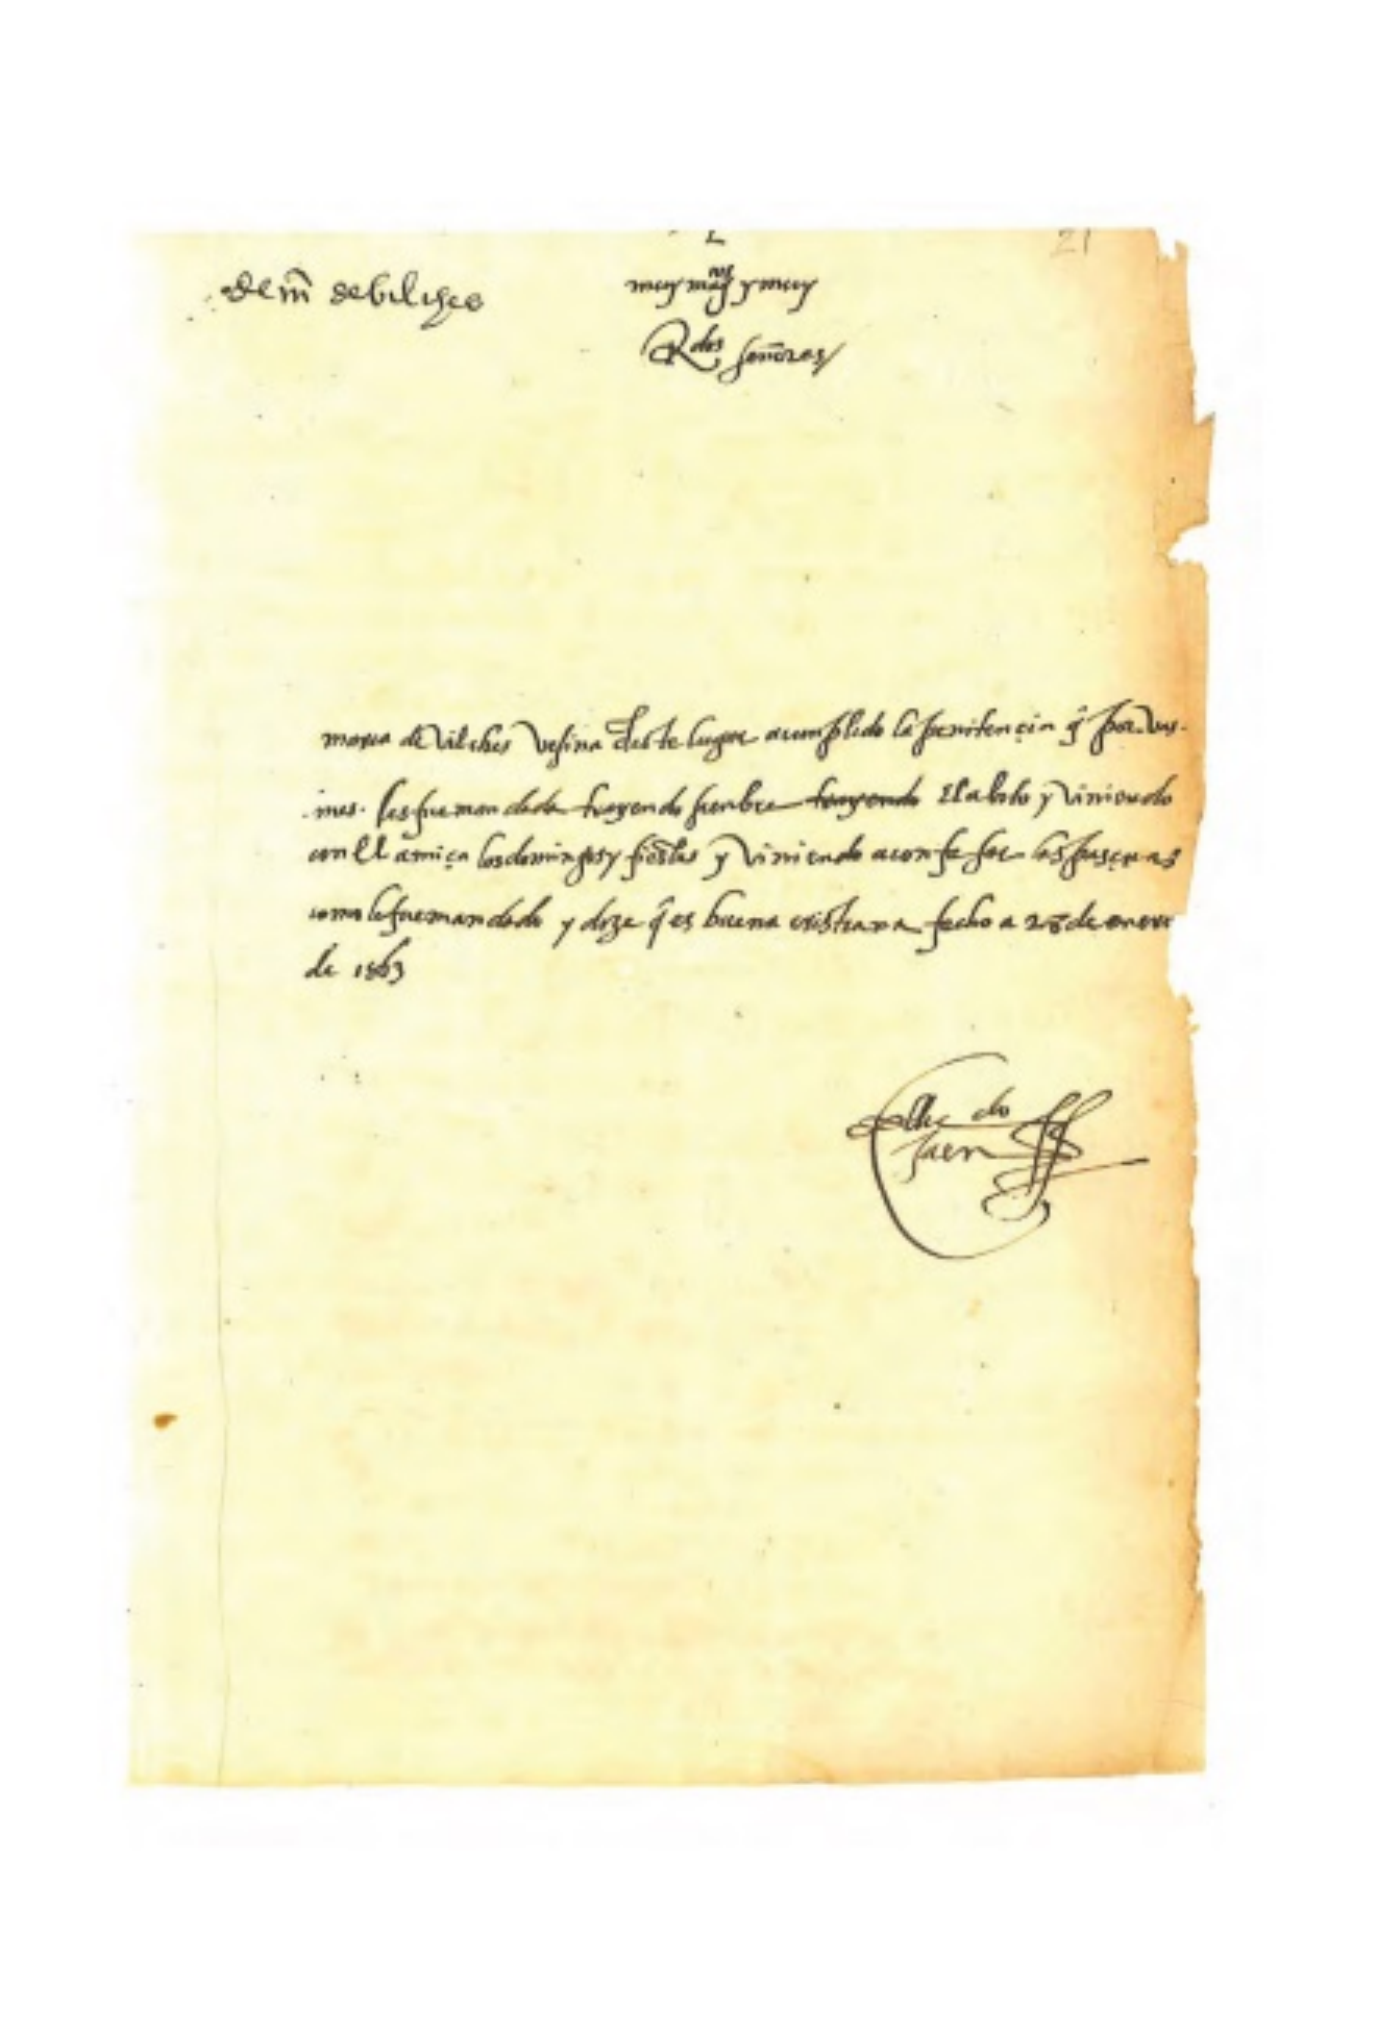 21
de m̃ de bilches
muy mag^cos y muy
R^dos señores
maria de vilches vesina deste lugar a cumplido la penitençia q̃ por vas.
mes. les fue mandada trayendo sienbre trayendo el abito y viniendo
con el a miça los domingos y fiestas y viniendo a confesar las pascuas
como le fue mandado y dize q̃ es buena cristiana fecho a 28 de enero
de 1563
do
Jaen